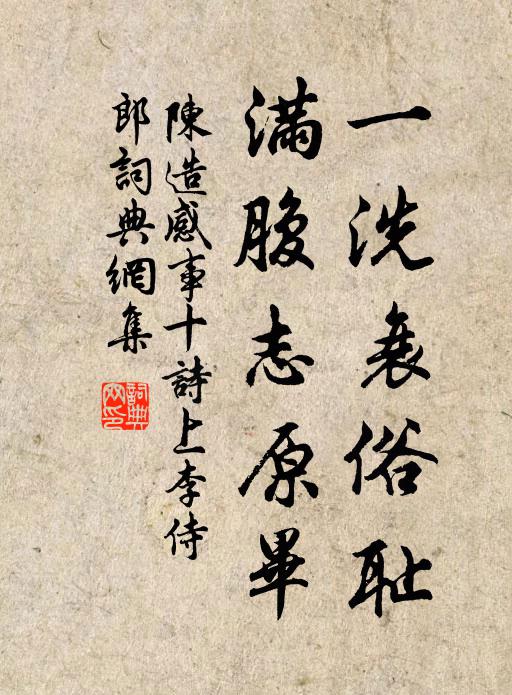 一洗衰俗耻
滿腹志原畢
陳造感事十詩上李侍
郎詞典網集
詞典网印